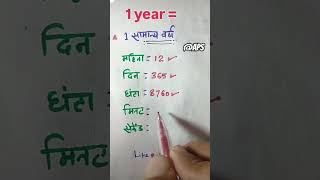 1 year =
1 सामान्य वर्ष
@APS
महिना = 12 ✓
दिन = 365 ✓
घंटा = 8760 ✓
मिनट =
सेकेंड :
Like
मिनट